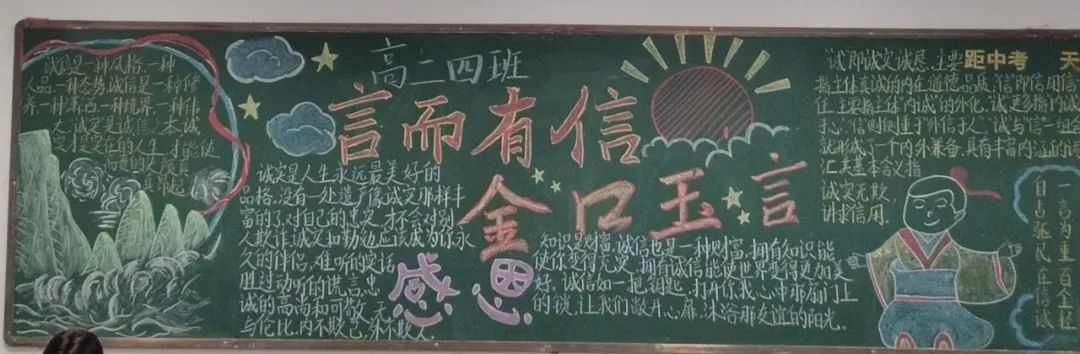 诚信是一种风格一种
人品,一种态势,诚信是一种修
养一种 一种境界,一种伟
大,诚实是诚信之本,诚
实 在的人生,才能使
高二四班
言而有信
金口玉言
诚实是人生永远最美好的
品格,没有一处遗产像诚实那样丰
富的了,对自己的忠实,才不会对别
人欺诈,诚实和勤劳应该成为你永
久的伴侣,难听的实话
胜过动听的谎言,忠
诚的高尚和可敬,无
与伦比,内不欺己,外不欺人。
感恩
知识是财富,诚信也是一种财富,拥有知识能
使你变得充实,拥有诚信能使世界变得更加美
好,诚信如一把钥匙,打开你我心中那扇门上
的锁,让我们敞开心扉,沐浴那友谊的阳光。
距中考 天
“诚”即诚实诚恳,主要
指主体真诚的内在道德品质,“信”即信用信
任,主要指主体“内诚”的外化,“诚”更多指“内诚
于心”,“信”则侧重于“外信于人”,“诚”与“信”一组合
就形成了一个内外兼备,具有丰富内涵的词
汇,其基本含义指
诚实无欺,
讲求信用。
一言为重百金轻
自古驱民在信诚